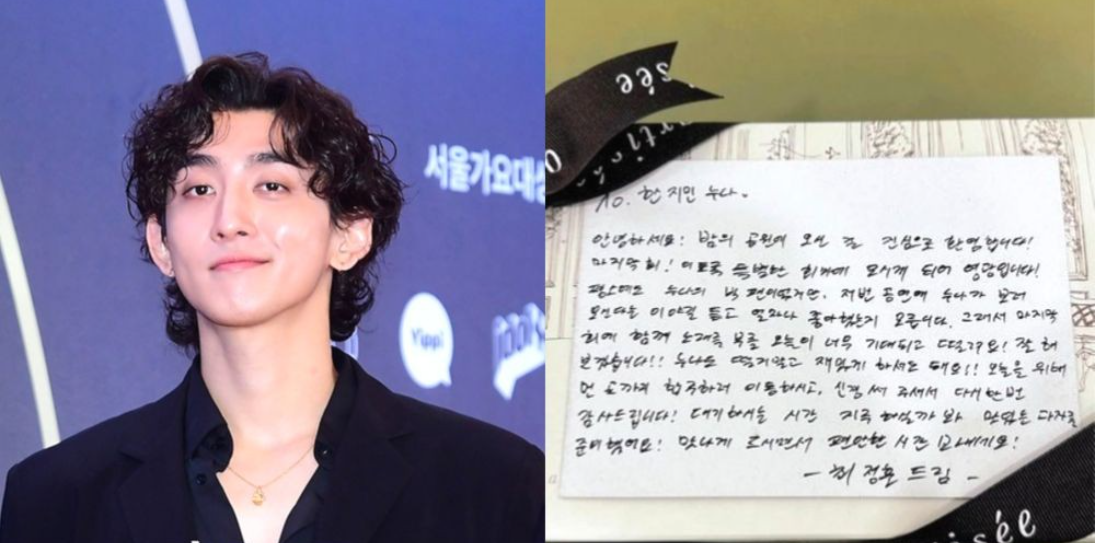 서울가요대상
Yippi
To. 한지민 누나.
안녕하세요! 밤의 공원에 오신 걸 진심으로 환영합니다!
마지막회! 이토록 특별한 회차에 모시게 되어 영광입니다!
평소에도 누나의 빅 팬이었지만, 저번 공연에 누나가 보러
오신다는 이야길 듣고 얼마나 좋아했는지 모릅니다. 그래서 마지막
회에 함께 노래해 부를 오늘이 너무 기대되고 떨려요! 잘 해
보겠습니다!! 누나도 떨지말고 재밌게 하셔도 돼요!! 오늘을 위해
먼 곳까지 합주하러 이동하시고, 신경 써 주셔서 다시한번
감사드립니다! 대기하시는 시간 지루하실까 봐 맛있는 과자를
준비했어요! 맛나게 드시면서 편안한 시간 보내세요!
- 최정훈 드림 -